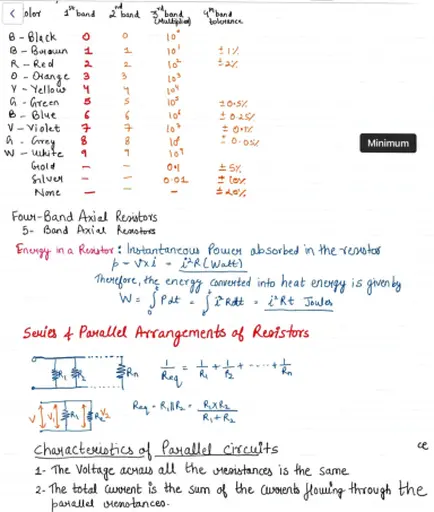 color 1st band 2nd band 3rd band (Multiplier) 4th band tolerance
B - Black 0 0 10⁰
B - Brown 1 1 10¹ ± 1%
R - Red 2 2 10² ± 2%
O - Orange 3 3 10³
Y - Yellow 4 4 10⁴
G - Green 5 5 10⁵ ± 0.5%
B - Blue 6 6 10⁶ ± 0.25%
V - Violet 7 7 ± 0.1%
G - Grey 8 8 ± 0.05%
Minimum
W - White 9 9 10⁹
Gold — — 0.1 ± 5%
Silver — — 0.01 ± 10%
None — — — ± 20%
Four-Band Axial Resistors
5- Band Axial Resistors
Energy in a Resistor : Instantaneous Power absorbed in the resistor
p = v x i = i²R (Watt)
Therefore, the energy converted into heat energy is given by
W = ∫₀ᵗ P dt = ∫₀ᵗ i²R dt = i²Rt Joules
Series & Parallel Arrangements of Resistors
R₁ R₂ Rn 1/Req = 1/R₁ + 1/R₂ + ---- + 1/Rn
V V₁ R₁ R₂ V₂ Req = R₁||R₂ = R₁xR₂/R₁+R₂
Characteristics of Parallel circuits ce
1- The Voltage across all the resistances is the same
2- The total current is the sum of the currents flowing through the
parallel resistances.